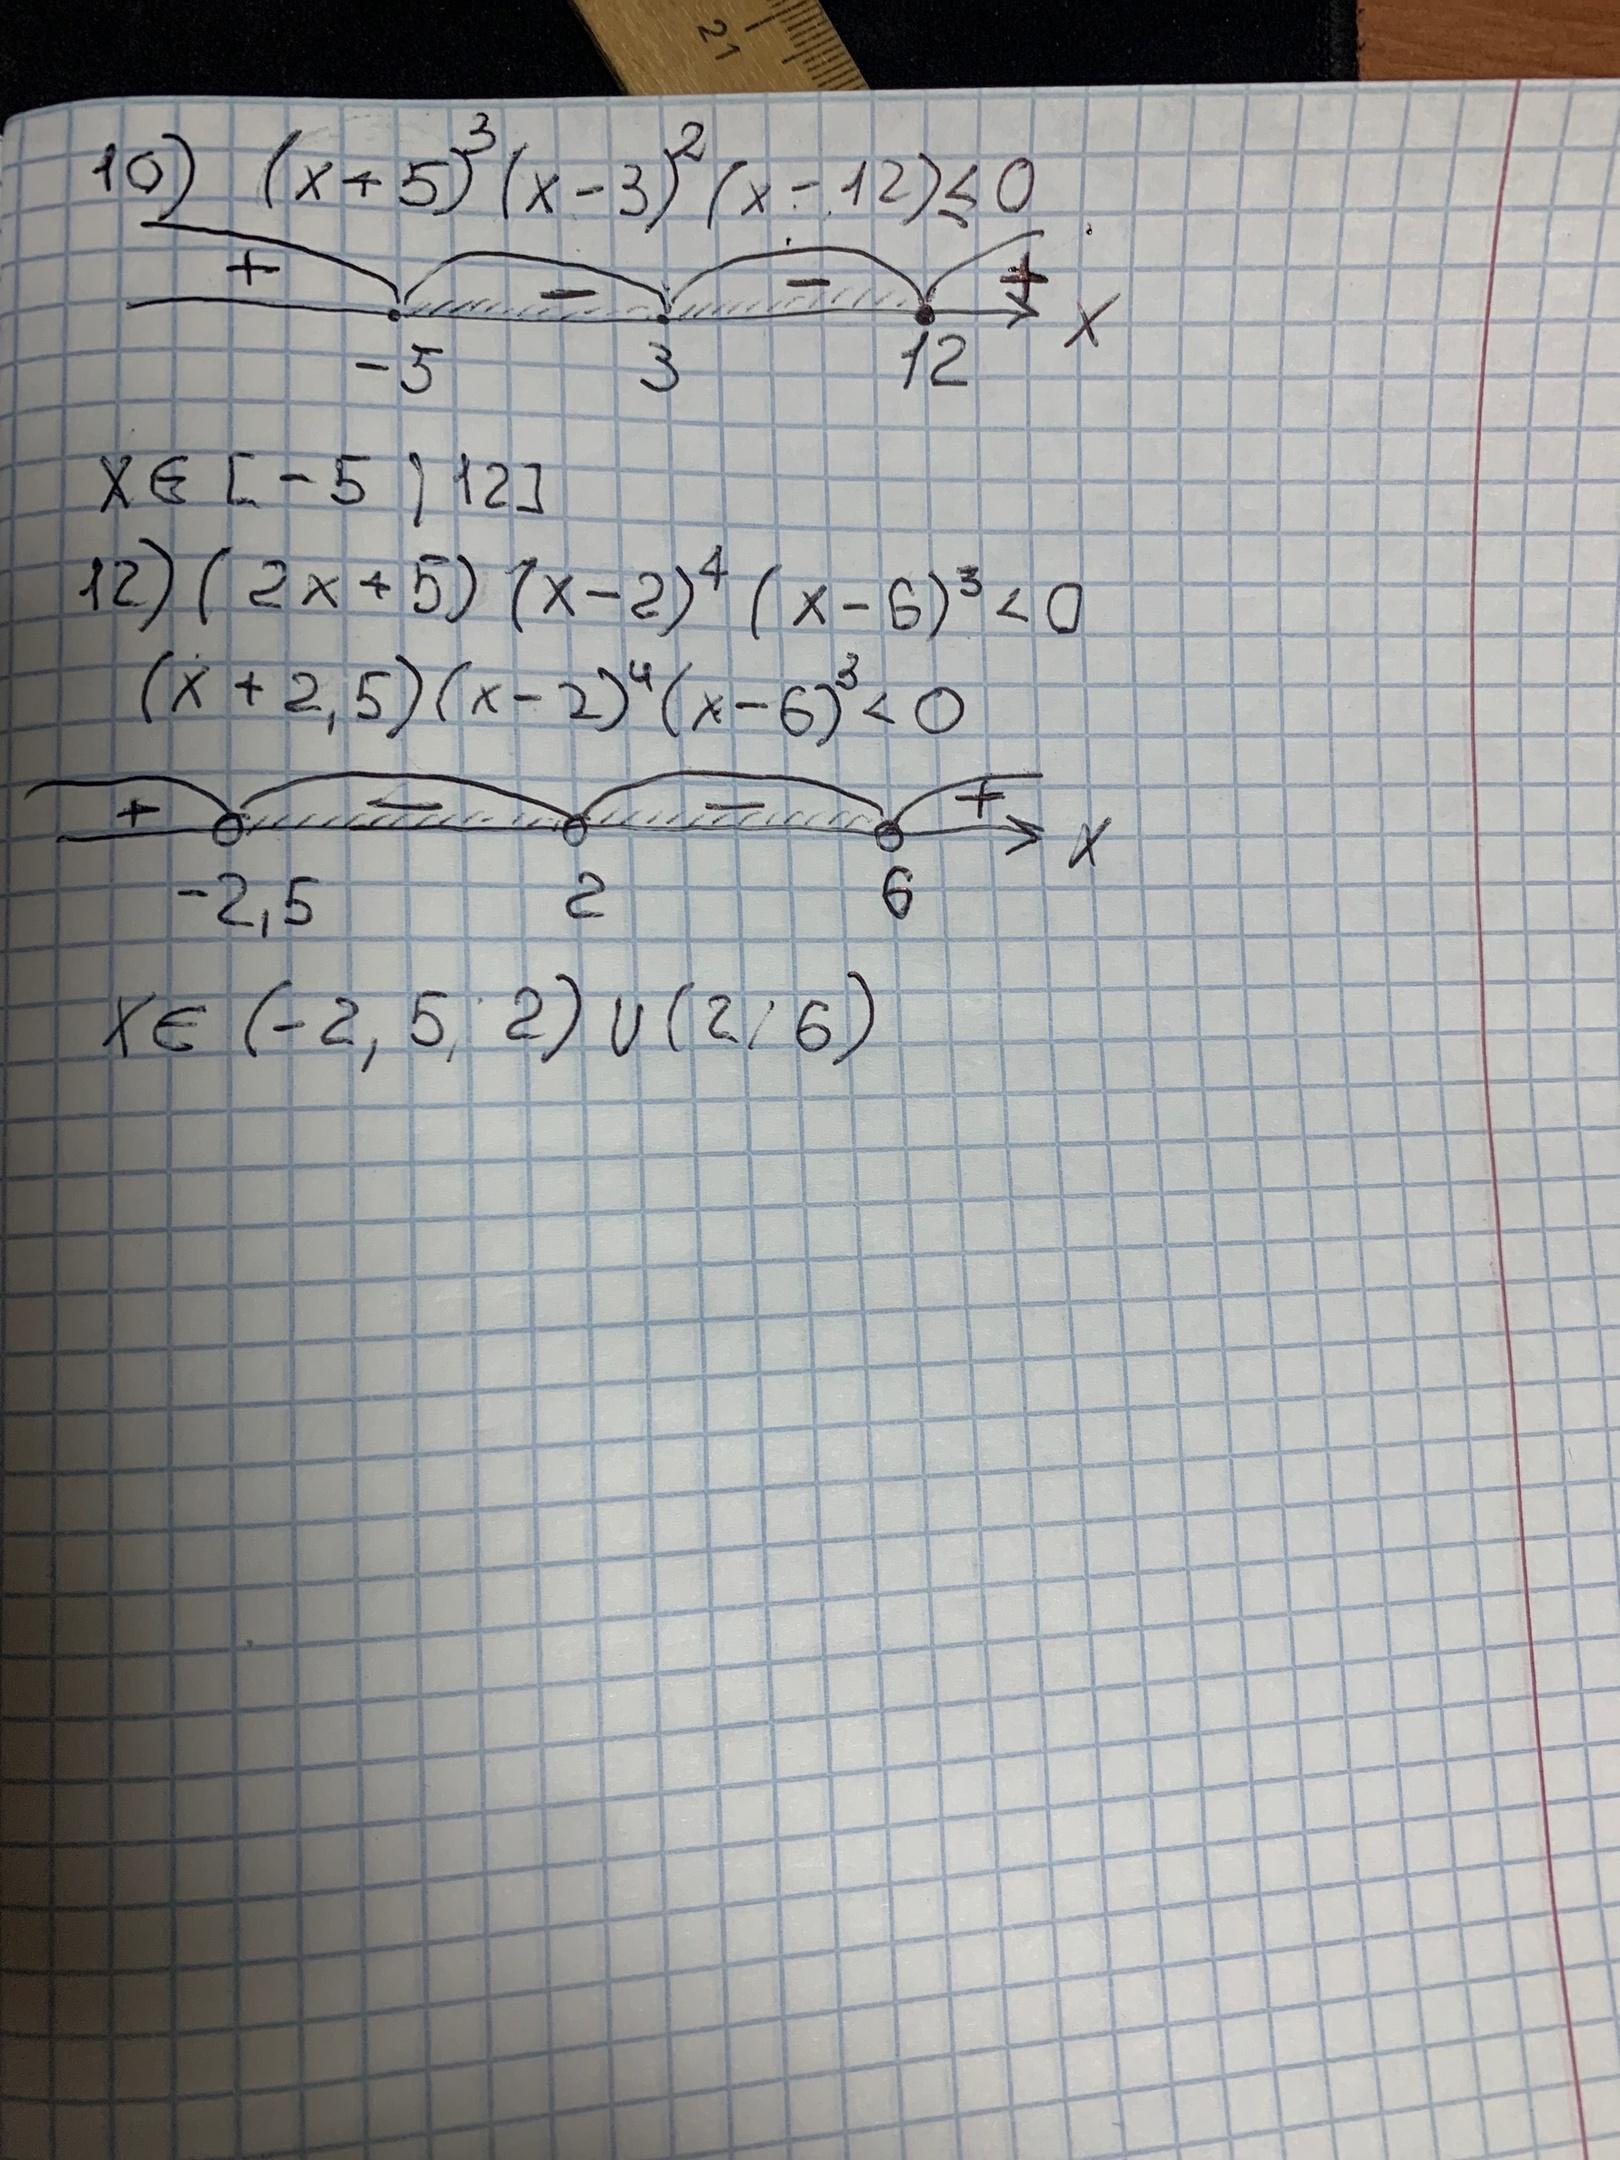 21
10) (x+5)³(x-3)²(x-12)≤0
+ - - +
-5 3 12 x
x∈[-5;12]
12)(2x+5)(x-2)⁴(x-6)³<0
(x+2,5)(x-2)⁴(x-6)³<0
+ - - +
-2,5 2 6 x
x∈(-2,5;2)∪(2;6)